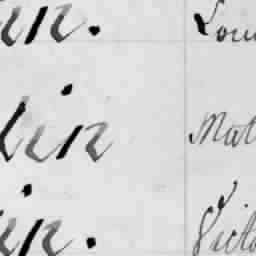 in. Loui
lin Mat
in. Victo